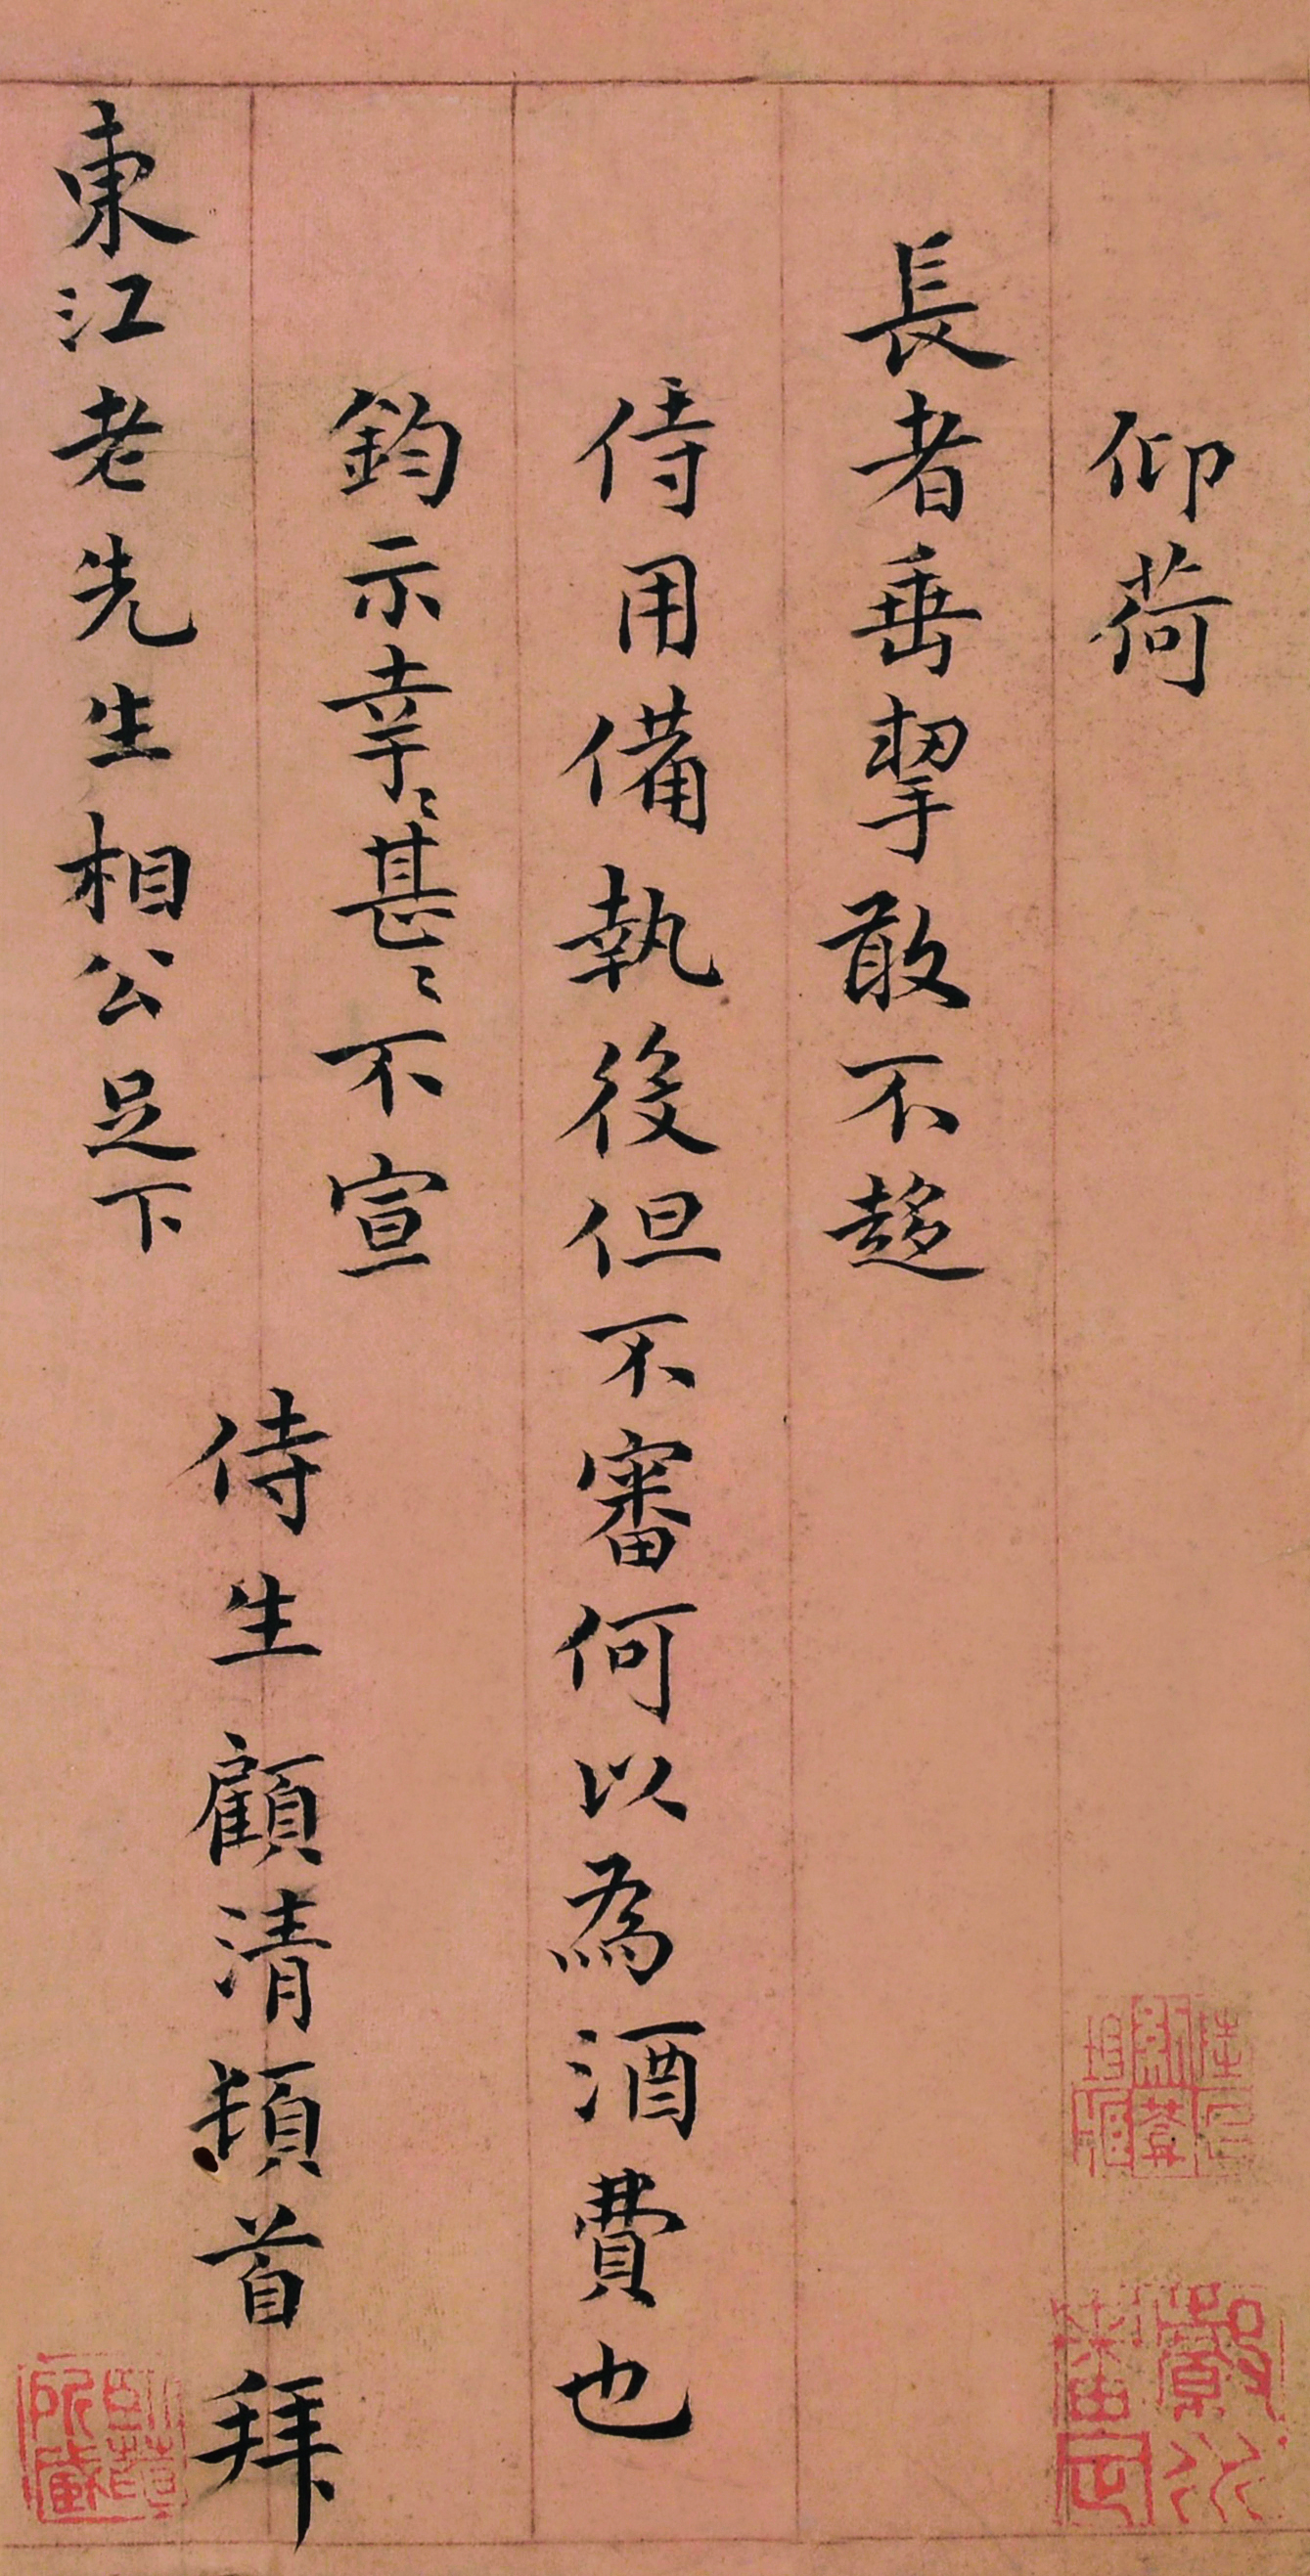 仰荷
長者垂挈敢不趍
侍用備執後但不審何以為酒費也
鈞示幸〻甚〻不宣
侍生顧清頓首拜
東江老先生相公足下